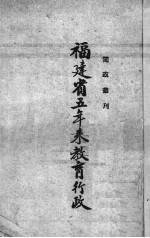 閩政叢刊
福建省五年来教育行政